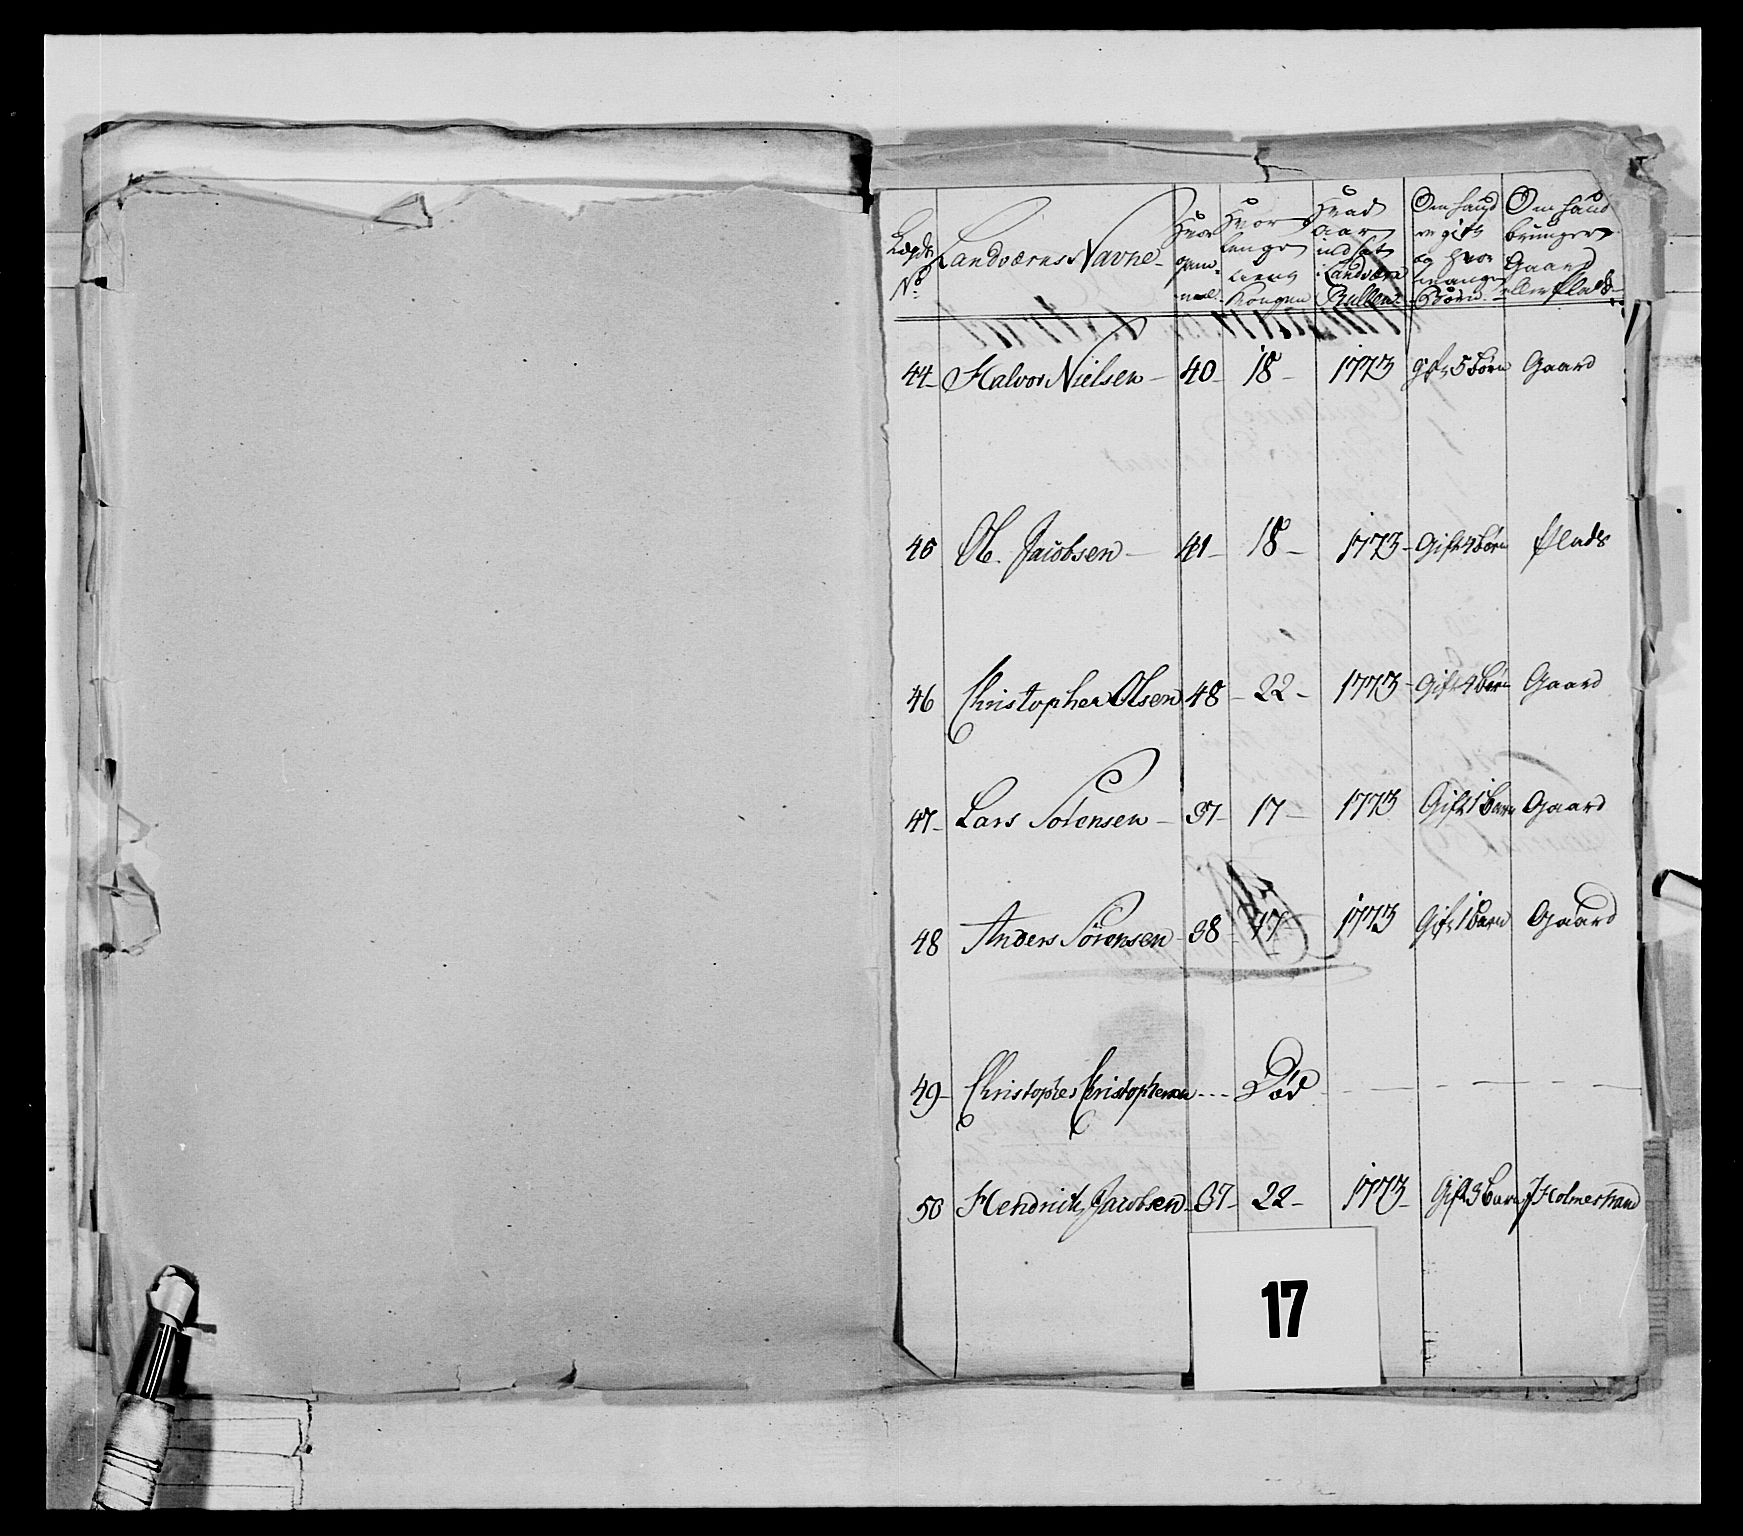 Lægds No | Landværns Navne | Hvor gam- mel | Hvor lenge tient Kongen | Hvad Aar indsat i Landværn Rullen | Om hand er gift og hvor mange Børn | Om hand bruuger Gaard eller Plads
44 Halvor Nielsen 40 18 1773 gift 5 børn Gaard
45 Ol. Jacobsen 41 18 1773 Gift 4 børn Plads
46 Christopher Olsen 48 22 1773 Gift 4 børn Gaard
47 Lars Sørensen 37 17 1773 Gift 1 barn Gaard
48 Anders Sørensen 38 17 1773 Gift 1 barn Gaard
49 Christopher Christophersen Død
50 Hendrich Jacobsen 37 22 1773 Gift 3 barn J Holmestrand
17